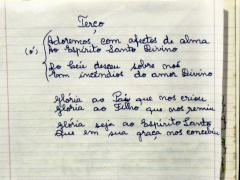 Terço
(6) Adoremos, com afectos de alma
Ao Espírito Santo Divino
Do Céu desceu sobre nós
Com incêndios do amor Divino
Glória ao Pai que nos criou
Glória ao Filho que nos remiu
Glória seja ao Espírito Santo
Que em sua graça nos concebeu